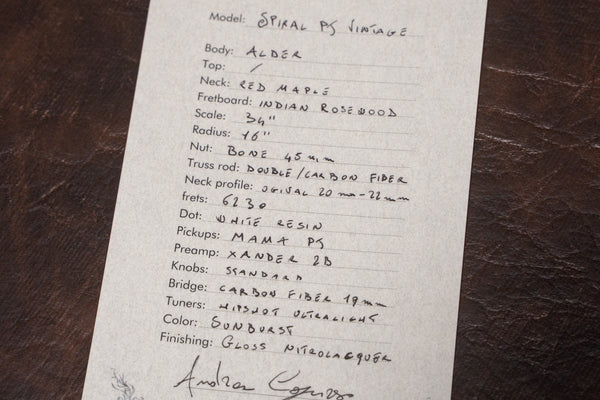 Model: SPIRAL P5 VINTAGE
Body: ALDER
Top: /
Neck: RED MAPLE
Fretboard: INDIAN ROSEWOOD
Scale: 34"
Radius: 16"
Nut: BONE 45 mm
Truss rod: DOUBLE/CARBON FIBER
Neck profile: OGIVAL 20 mm-22mm
frets: 6230
Dot: WHITE RESIN
Pickups: MAMA P5
Preamp: XANDER 2B
Knobs: STANDARD
Bridge: CARBON FIBER 19mm
Tuners: HIPSHOT ULTRALIGHT
Color: SUNBURST
Finishing: GLOSS NITROLACQUER
Andrea